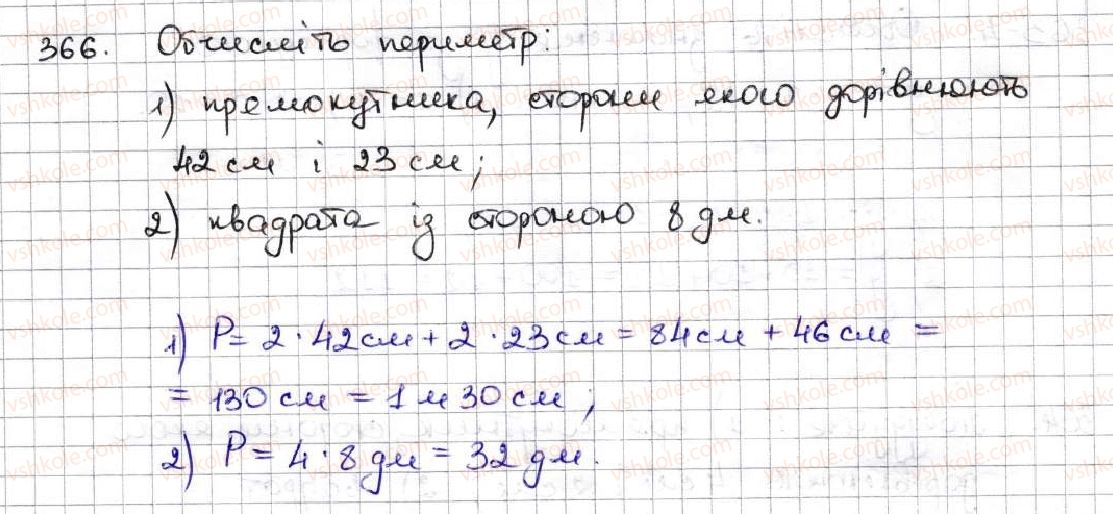 366. Обчисліть периметр:
1) прямокутника, сторони якого дорівнюють
42 см і 23 см;
2) квадрата із стороною 8 дм.
1) P = 2 · 42 см + 2 · 23 см = 84 см + 46 см =
= 130 см = 1 м 30 см;
2) P = 4 · 8 дм = 32 дм.